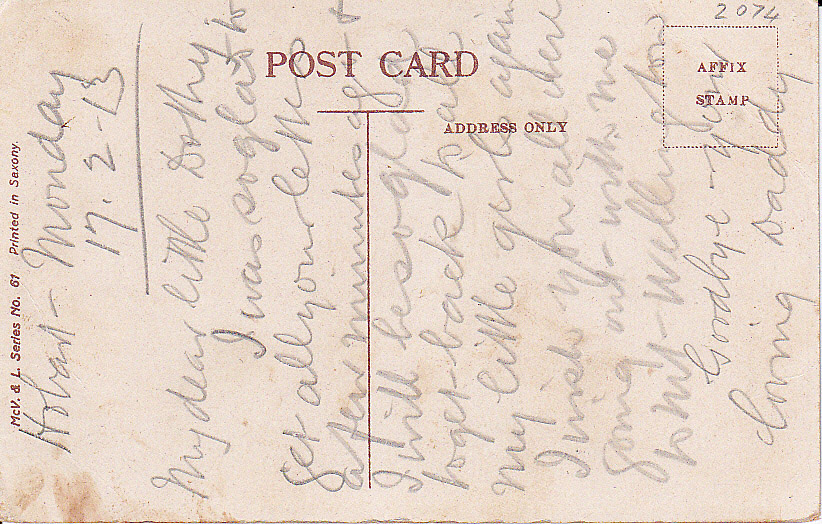 2074
POST CARD
AFFIX
STAMP
ADDRESS ONLY
McV. & L. Series No. 61 Printed in Saxony.
Hobart - Monday
17.2-13
My dear little Dothy
I was so glad to
get all your letters
a few minutes ago - &
I will be so glad
to get back to all
my little girls again
I wish you all were
going out - with me
to Mt - Wellington
Goodbye - your
loving Daddy